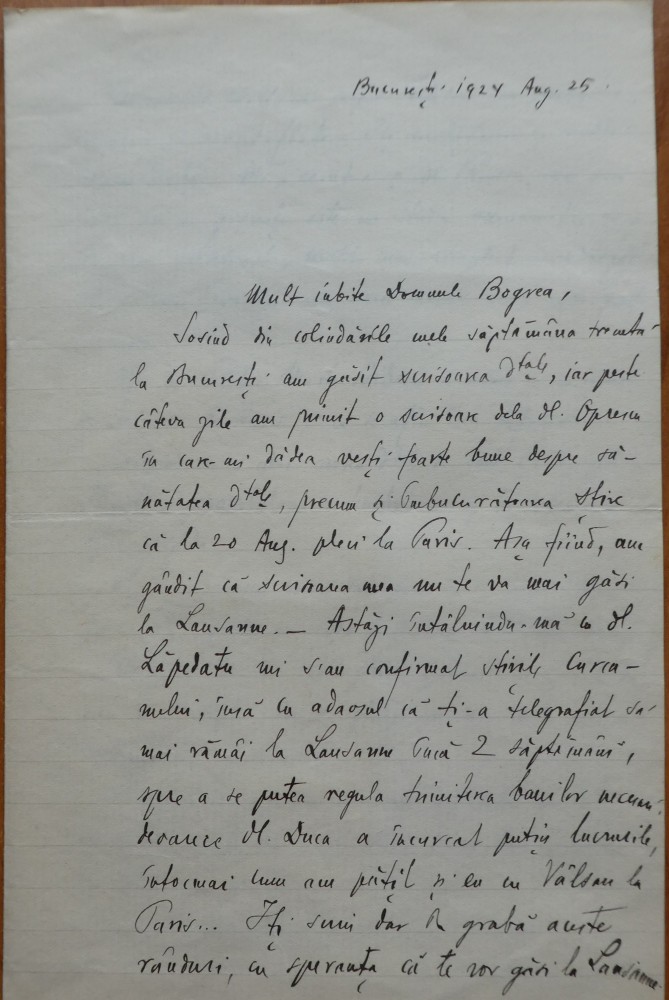 București 1924 Aug. 25.
Mult iubite Domnule Bogrea,
Sosind din colindările mele săptămâna trecută
la București am găsit scrisoarea Dtale, iar peste
câteva zile am primit o scrisoare dela dl. Oprescu
în care-mi dădea vești foarte bune despre să-
nătatea Dtale, precum și îmbucurătoarea știre
că la 20 Aug. pleci la Paris. Așa fiind, am
gândit că scrisoarea mea nu te va mai găsi
la Lausanne. — Astăzi întâlnindu-mă cu dl.
Lăpedatu mi s'au confirmat știrile
însă cu adaosul că ți-a telegrafiat să
mai rămâi la Lausanne încă 2 săptămâni,
spre a se putea regula trimiterea banilor necesari
deoarece dl. Duca a încurcat puțin lucrurile,
întocmai cum am pățit și eu cu Vâlsan la
Paris... Iți scriu dar în grabă aceste
rânduri, cu speranța că te vor găsi la Lausanne